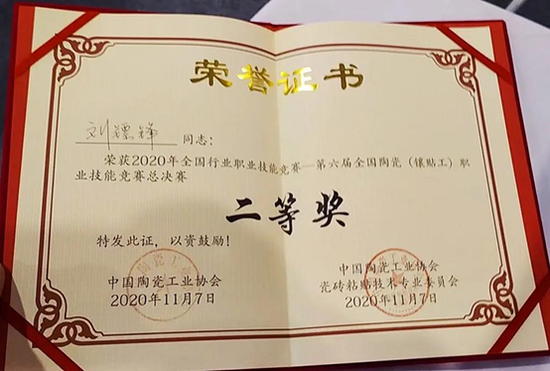 荣誉证书
刘镖锋 同志：
荣获2020年全国行业职业技能竞赛—第六届全国陶瓷（镶贴工）职
业技能竞赛总决赛
二等奖
特发此证，以资鼓励！
中国陶瓷工业协会
2020年11月7日
中国陶瓷工业协会
瓷砖粘贴技术专业委员会
2020年11月7日